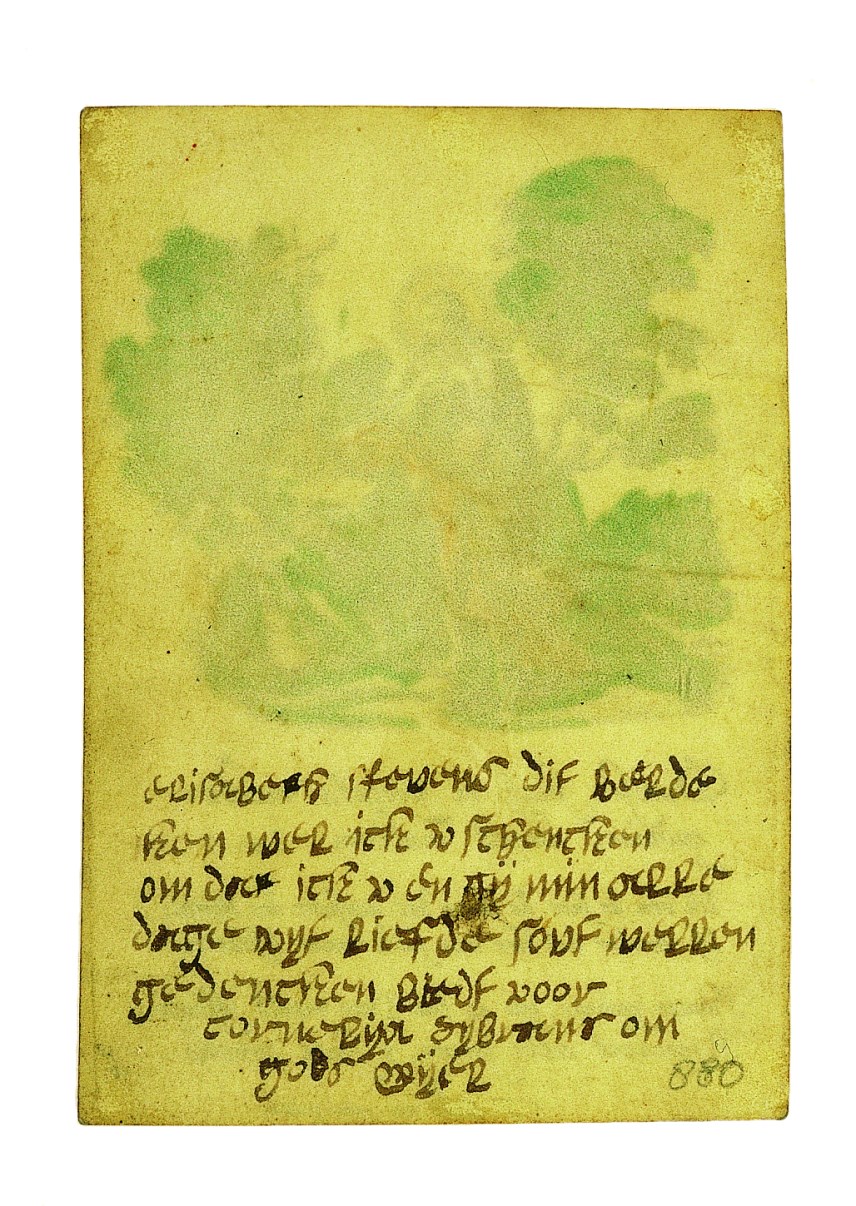 elisabeth stevens dit beelde
ken wel ick v schencken
om dat ick v en gÿ min alle
dage wyt liefde sout wellen
gedencken bidt voor
cornelija sybrans om
gods wÿel
880